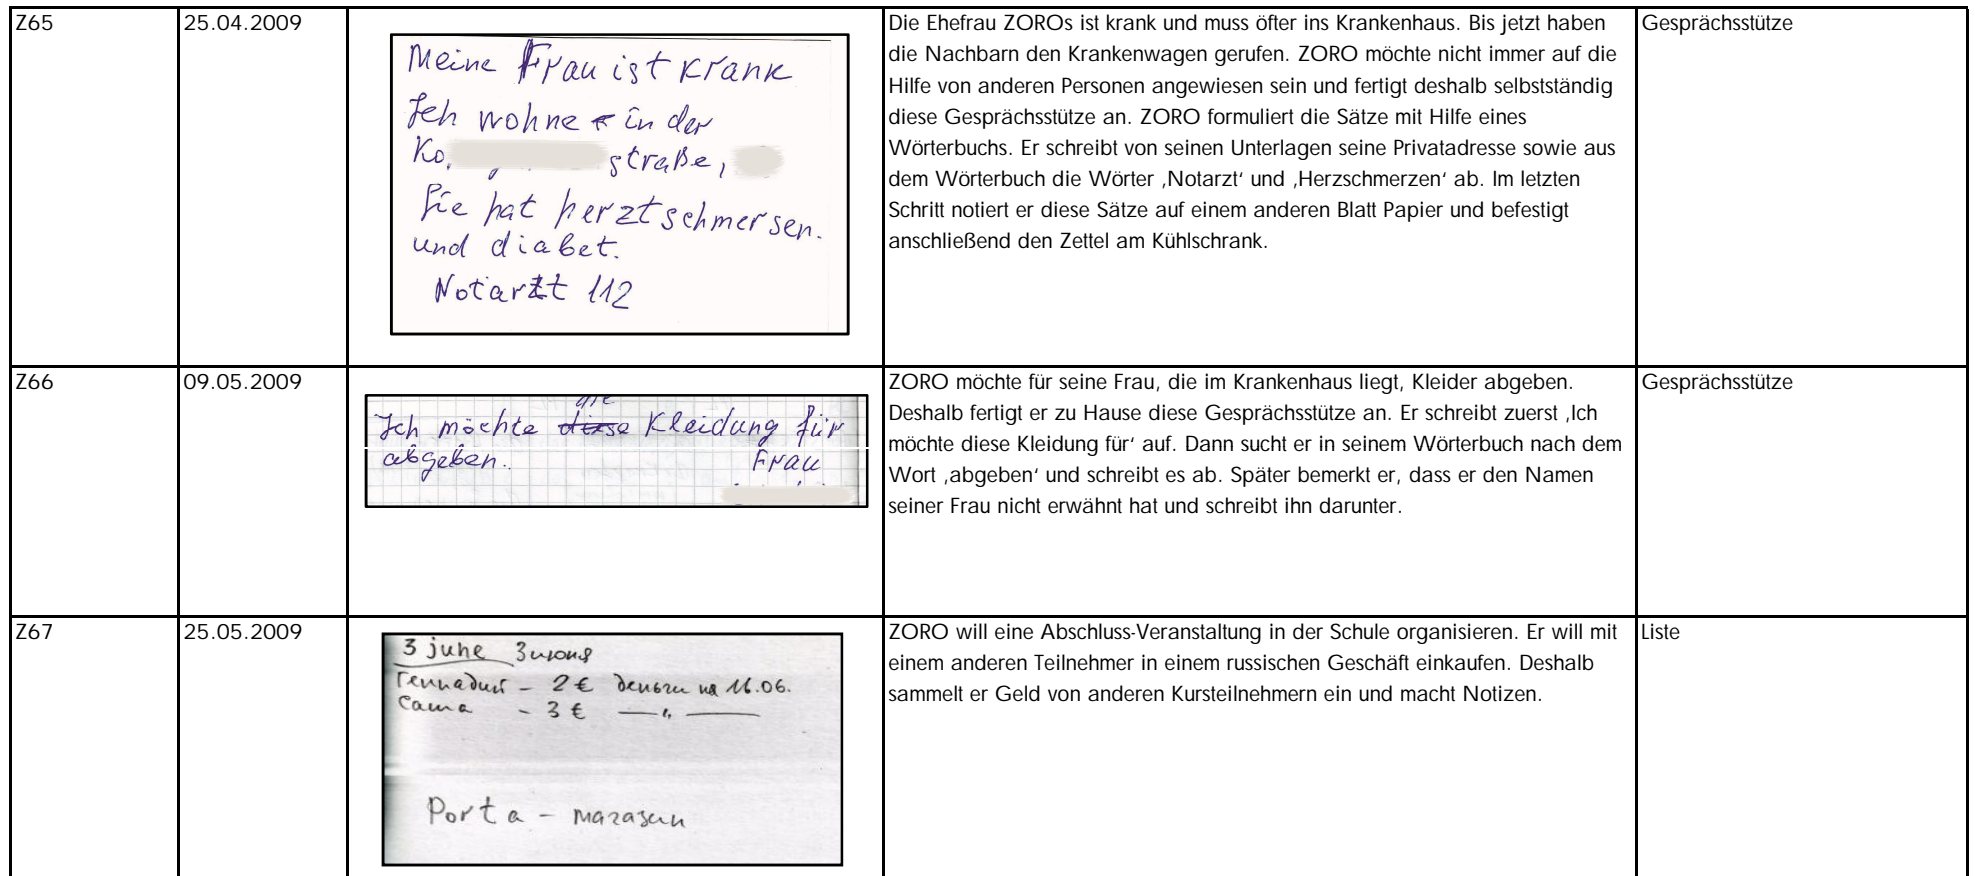 Z65
25.04.2009
Meine Frau ist krank
Ich wohne in der
Ko straße,
Sie hat herztschmersen.
und diabet.
Notarzt 112
Die Ehefrau ZOROs ist krank und muss öfter ins Krankenhaus. Bis jetzt haben
die Nachbarn den Krankenwagen gerufen. ZORO möchte nicht immer auf die
Hilfe von anderen Personen angewiesen sein und fertigt deshalb selbstständig
diese Gesprächsstütze an. ZORO formuliert die Sätze mit Hilfe eines
Wörterbuchs. Er schreibt von seinen Unterlagen seine Privatadresse sowie aus
dem Wörterbuch die Wörter ‚Notarzt‘ und ‚Herzschmerzen‘ ab. Im letzten
Schritt notiert er diese Sätze auf einem anderen Blatt Papier und befestigt
anschließend den Zettel am Kühlschrank.
Gesprächsstütze
Z66
09.05.2009
die
Ich möchte diese Kleidung für
abgeben. Frau
ZORO möchte für seine Frau, die im Krankenhaus liegt, Kleider abgeben.
Deshalb fertigt er zu Hause diese Gesprächsstütze an. Er schreibt zuerst ‚Ich
möchte diese Kleidung für‘ auf. Dann sucht er in seinem Wörterbuch nach dem
Wort ‚abgeben‘ und schreibt es ab. Später bemerkt er, dass er den Namen
seiner Frau nicht erwähnt hat und schreibt ihn darunter.
Gesprächsstütze
Z67
25.05.2009
3 june 3 июня
Геннадий – 2 € деньги на 16.06.
Саша – 3 € — „ —
Porta – магазин
ZORO will eine Abschluss-Veranstaltung in der Schule organisieren. Er will mit
einem anderen Teilnehmer in einem russischen Geschäft einkaufen. Deshalb
sammelt er Geld von anderen Kursteilnehmern ein und macht Notizen.
Liste